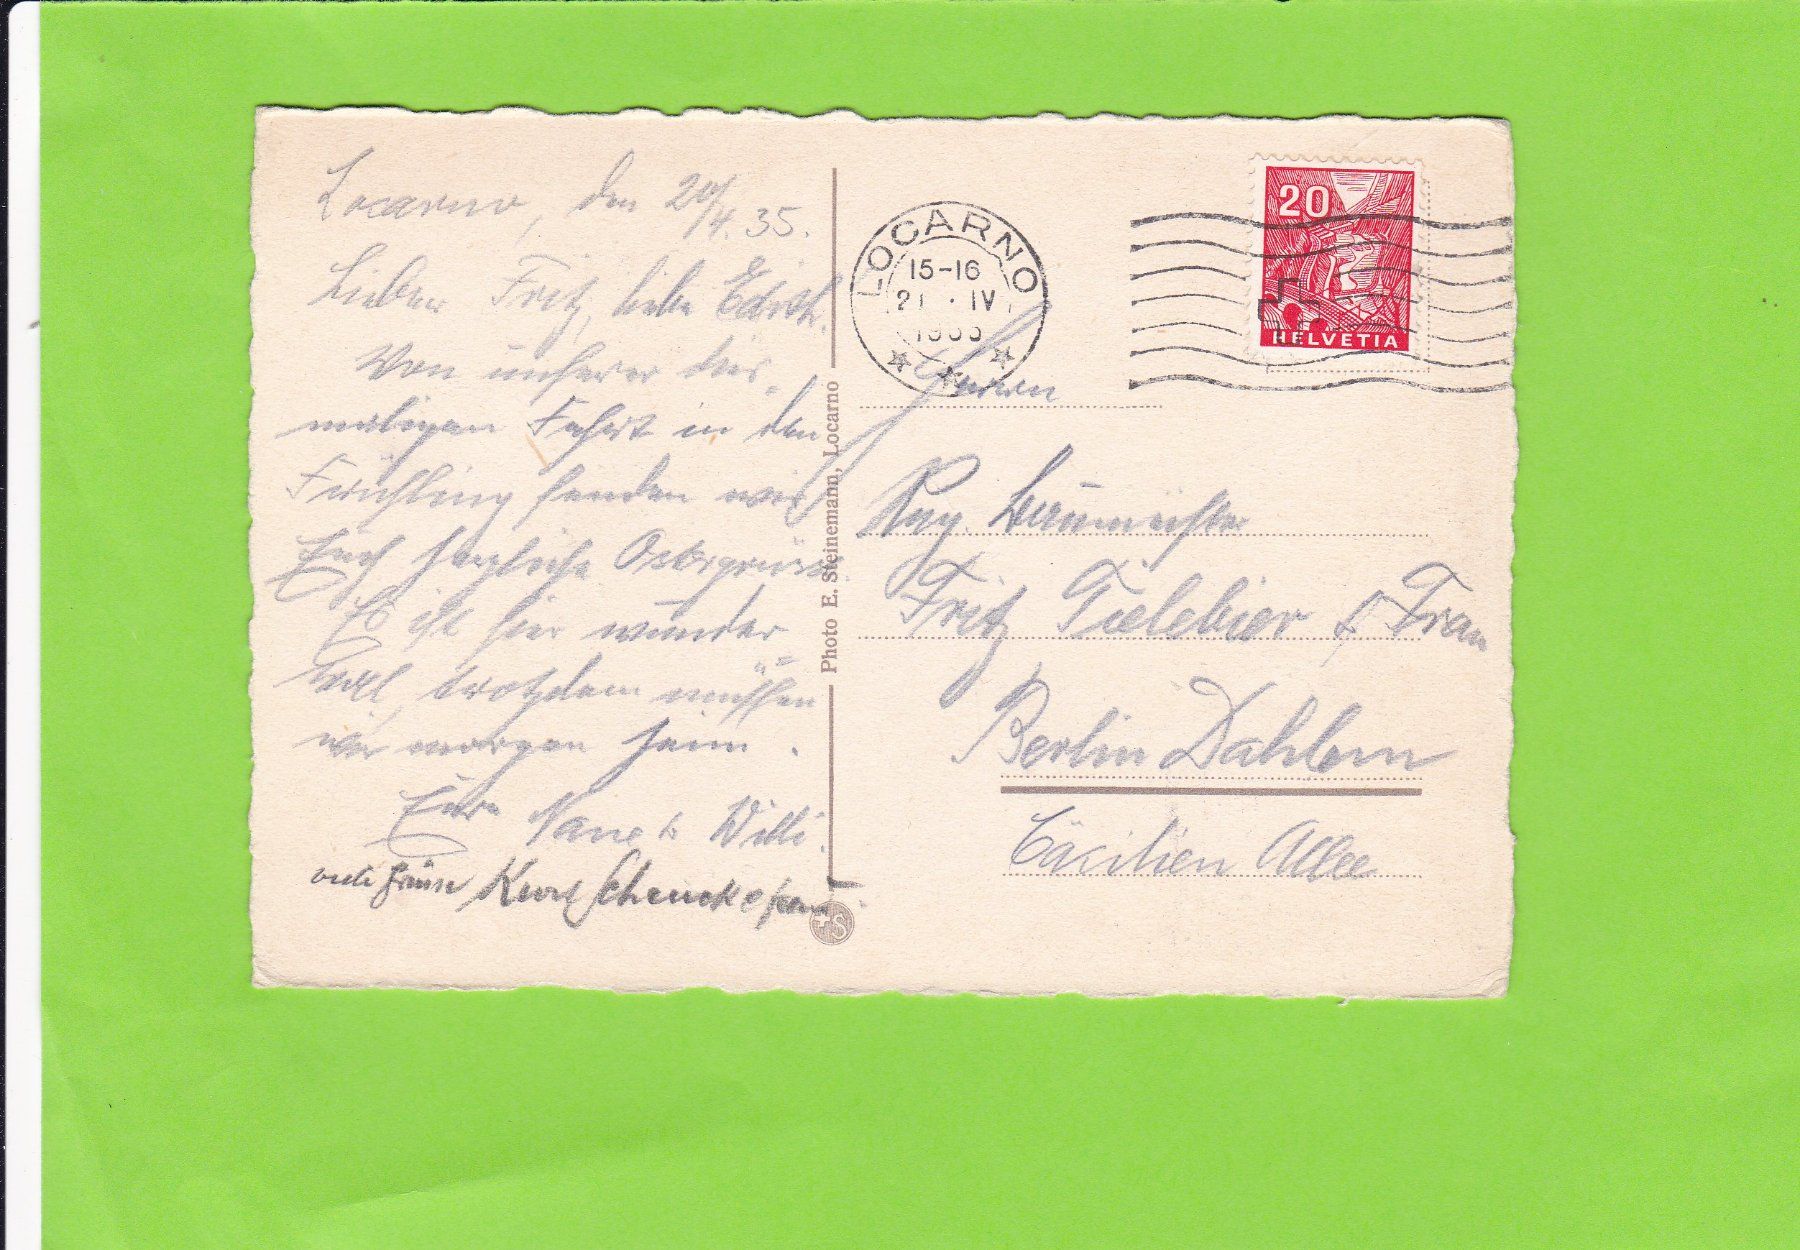 Locarno, den 20/4. 35.
Lieber Fritz, liebe Edith.
Von unserer dies-
maligen Fahrt in den
Frühling senden wir
Euch herzliche Ostergrüsse.
Es ist hier wunder
voll, trotzdem müssen
wir morgen heim.
Eure Nane & Willi.
viele Grüsse Kurt
Photo E. Steinemann, Locarno
+S
LOCARNO
15-16
21 . IV
1935
20
HELVETIA
Herrn
Reg. Baumeister
Fritz Tielebier & Frau
Berlin Dahlem
Cäcilien Allee